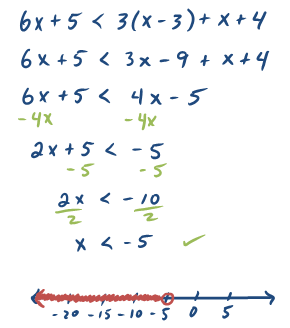 6x + 5 < 3(x - 3) + x + 4
6x + 5 < 3x - 9 + x + 4
6x + 5 < 4x - 5
- 4x - 4x
2x + 5 < - 5
- 5 - 5
2x < - 10
2 2
x < - 5 ✓
- 20 - 15 - 10 - 5 0 5